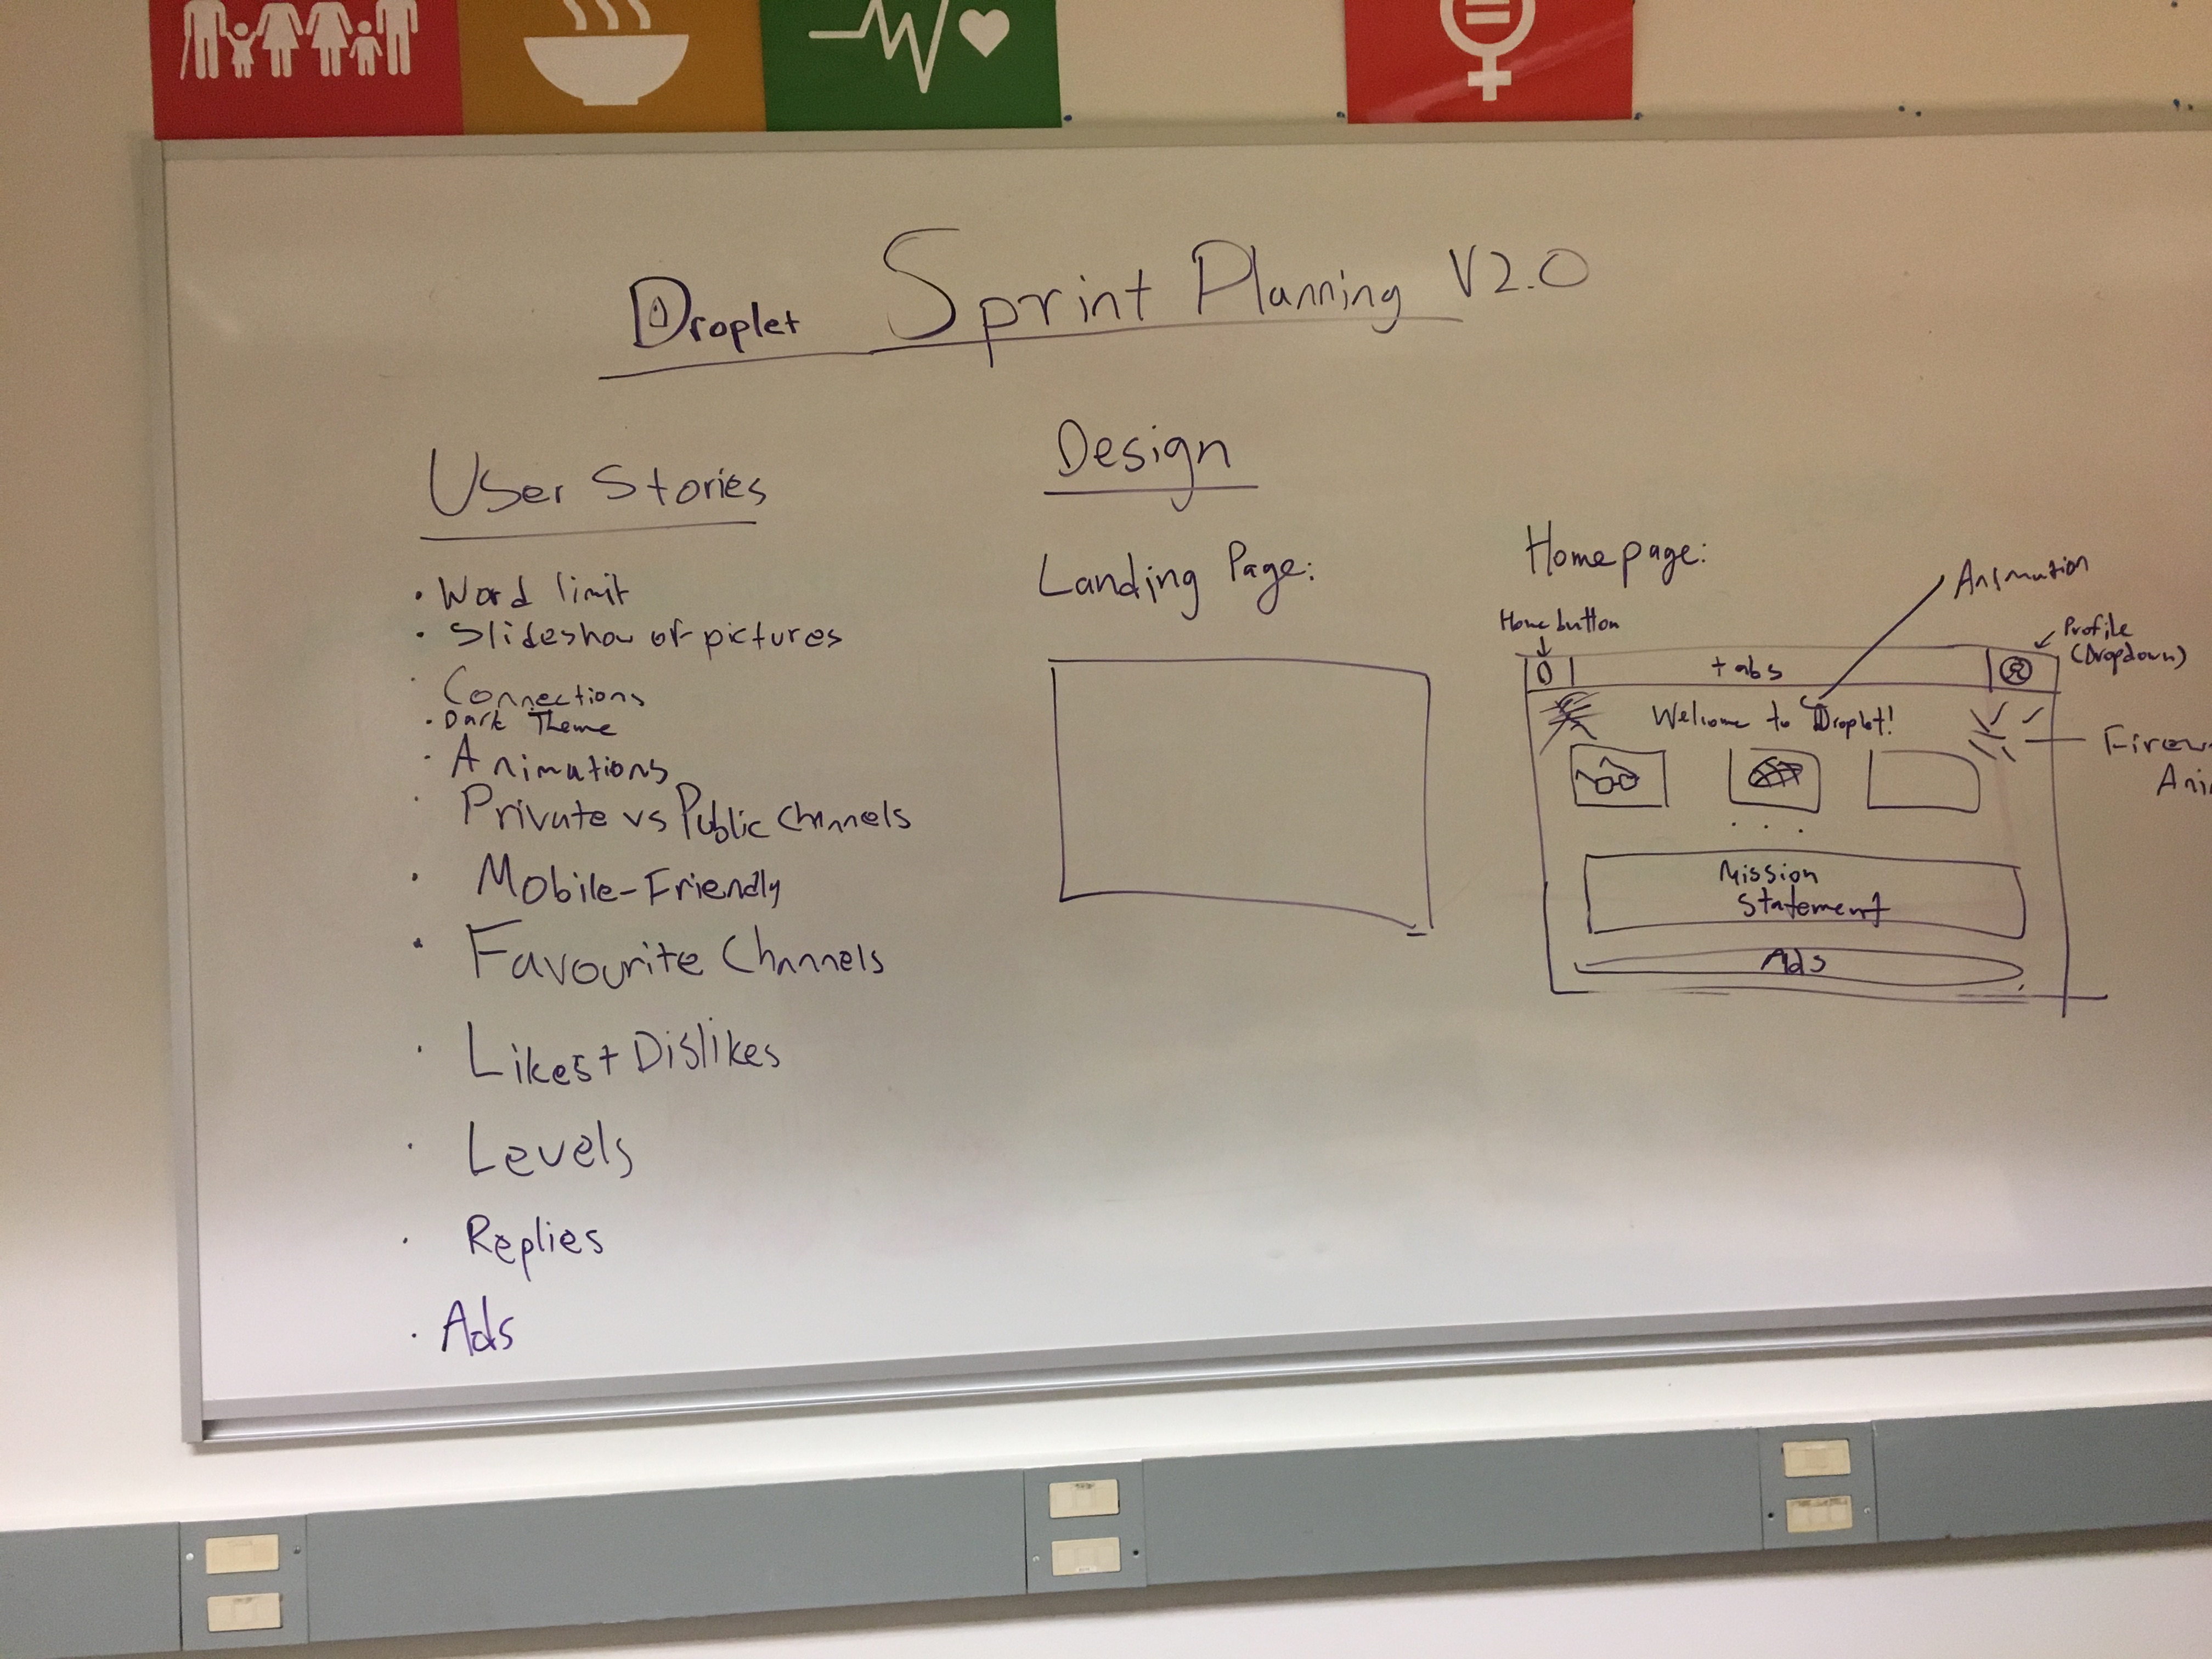 Droplet Sprint Planning V2.0
User Stories
• Word limit
• Slideshow of pictures
• Connections
• Dark Theme
• Animations
• Private vs Public Channels
• Mobile-Friendly
• Favourite Channels
• Likes + Dislikes
• Levels
• Replies
• Ads
Design
Landing Page:
Homepage:
Animation
Home button
Profile
(Dropdown)
tabs
Welcome to Droplet!
Mission
Statement
Ads